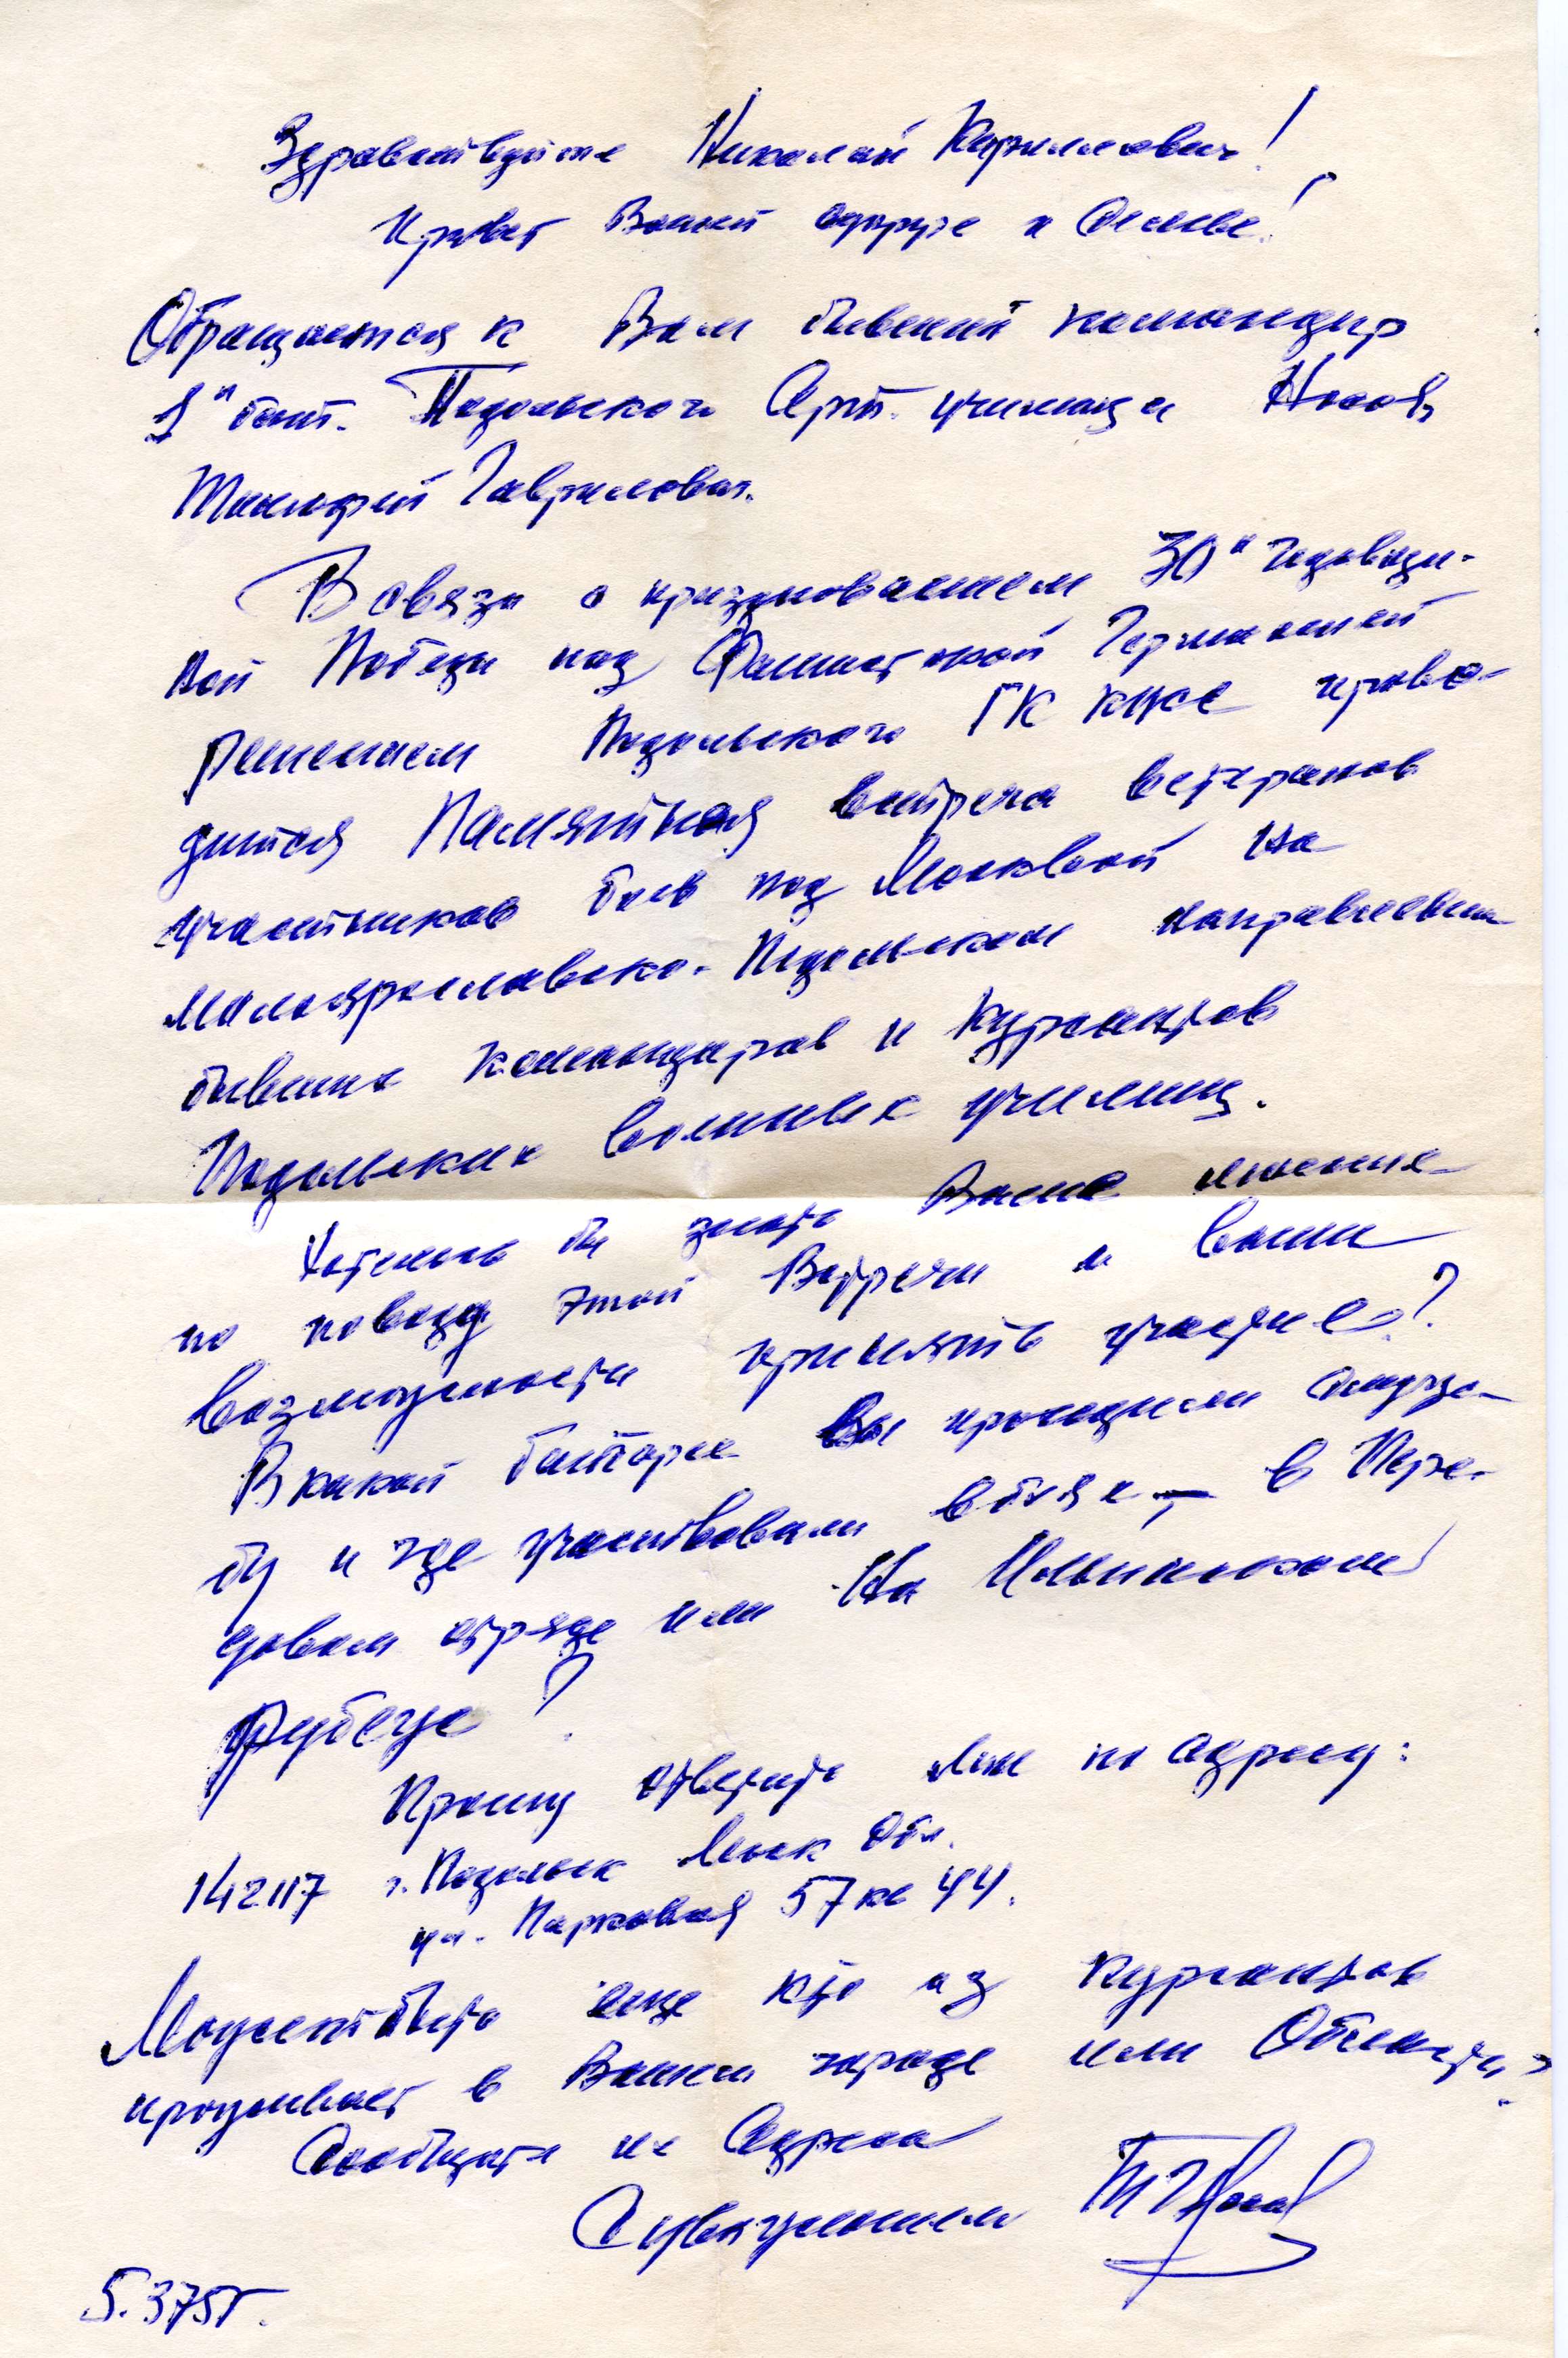 Здравствуйте Николай Кириллович!
Привет Вашей супруге и семье!
Обращается к Вам бывший командир
1й бат. Подольского Арт. училища Носов
Тимофей Гаврилович.
В связи с празднованием 30й годовщи-
ной Победы над Фашистской Германией
решением Подольского ГК КПСС прово-
дится Памятная встреча ветеранов
участников боев под Москвой на
Малоярославско-Подольском направлении
бывших командиров и курсантов
Подольских военных училищ.
Хотелось бы знать Ваше мнение
по поводу этой Встречи и Ваши
возможности принять участие?
В какой батарее Вы проходили служ-
бу и где участвовали в боях, в Пере-
довом отряде или На Ильинском
рубеже?
Прошу ответить мне по адресу:
142117 г. Подольск Моск Обл.
ул. Парковая 57 кв 44.
Может быть еще кто из курсантов
проживает в Вашем городе или Области?
Сообщите их Адреса
С уважением Т Г Носов
5.3 75 г.